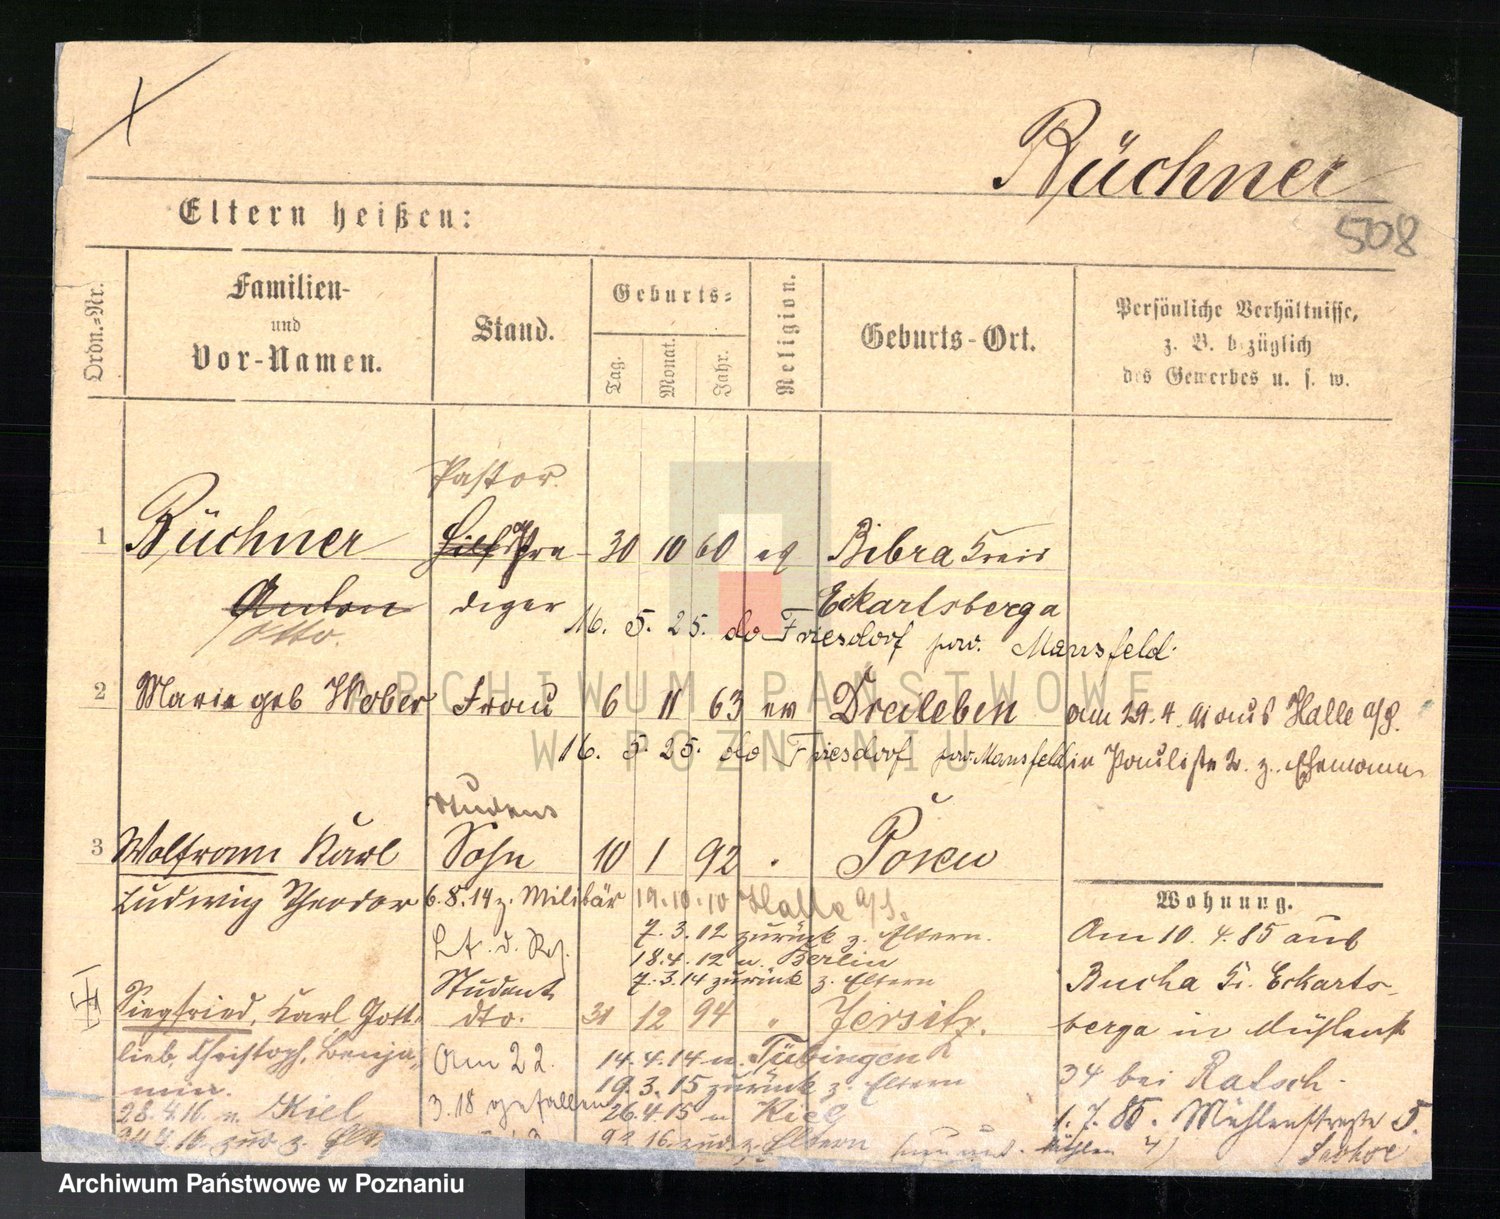 Rüchner
508
Eltern heißen:
Ordn.-Nr.
Familien-
und
Vor-Namen.
Stand.
Geburts-
Tag.
Monat.
Jahr.
Religion.
Geburts-Ort.
Persönliche Verhältnisse,
z. B. bezüglich
des Gewerbes u. s. w.
Pastor.
1 Rüchner Hilfspre- 30 10 60 Bibra Kreis
Anton diger Eckartsberga
Otto.
16. 5. 25. do Friesdorf Mansfeld
2 Marie geb Wober Frau 6 11 63 ev Dreileben am 29. 4. 91 aus Halle a/S.
16. 5. 25. do Friesdorf Mansfeld
Student
3 Wolfram Karl Sohn 10 1 92 Posen
Ludwig Theodor 6. 8. 14 z. Militär 19. 10. 10 Halle a/S.
Wohnung.
7. 3. 12 zurück z. Eltern.
Am 10. 4. 85 aus
Lt. d. Rs. 18. 4. 12 n. Berlin
Student 7. 3. 14 zurück z. Eltern
Bucha Kr. Eckarts-
Siegfried, Karl Gott- dto. 31 12 94 " Jersitz.
berga in Mühlenst
lieb, Christoph, Benja- Am 22. 14. 4. 14 n. Tübingen
min. 19. 3. 15 zurück z. Eltern
34 bei Ratsch-
28. 4. 16. n. Kiel 3. 18 gefallen 26. 4. 15 n Kiel
1. 7. 85. Mühlenstraße 5.
zur. z. Elt. zur. z. Eltern
ARCHIWUM PAŃSTWOWE
W POZNANIU
Archiwum Państwowe w Poznaniu